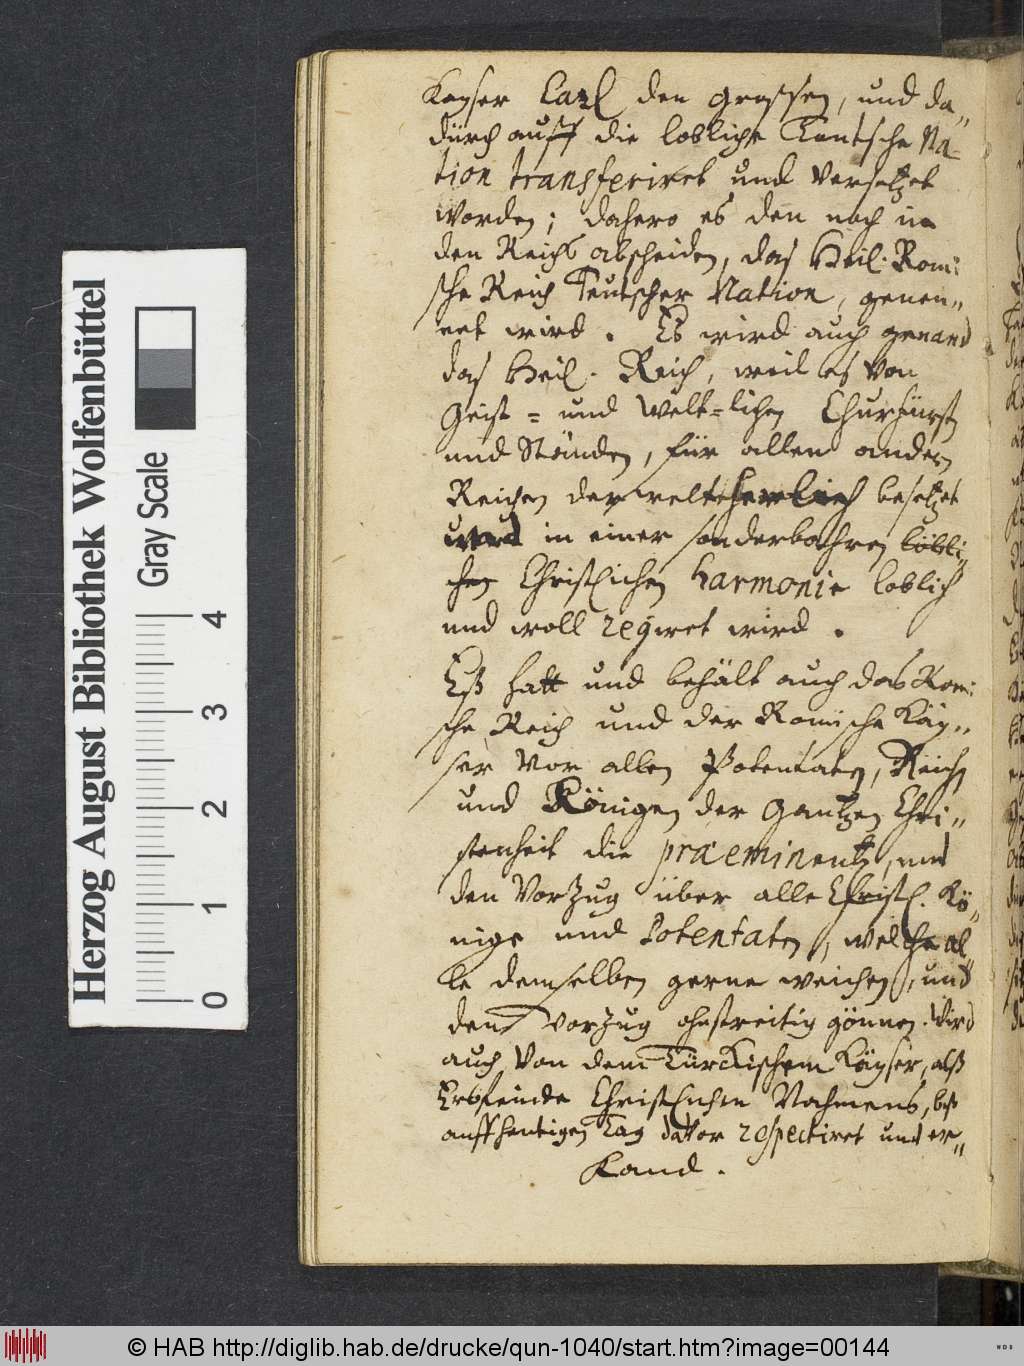 Kayser Carl den grossen, und da„
durch auff die lobliche Teutsche Na-
tion transferiret und versetzet
worden; dahero es den noch in
den Reichs abscheiden, das Heil. Romi
sche Reich Teutscher Nation, genen„
net wird. Es wird auch genand
das Heil. Reich, weil es von
Geist = und welt=lichen Churfürsten
und Ständen, für allen andern
Reichen der welt herlich besetzet
und in einer sonderbahren löbli„
chen Christlichen Harmonie loblich
und woll regiret wird.
Eß hatt und behält auch das Romi
sche Reich und der Romische Käy„
ser vor allen Potentaten, Reichen
und Königen der gantzen Chri„
stenheit die præeminentz, und
den Vorzug über alle Christl. Kö„
nige und Potentaten, welche al„
le demselben gerne weichen, und
den vorzug ohnstreitig gönnen. Wird
auch von dem Türckischem Käyser, alß
Erbfeinde Christlichen Nahmens, biß
auff heutigen Tag davor respectiret und er„
kand.
Herzog August Bibliothek Wolfenbüttel
Gray Scale
0 1 2 3 4
© HAB http://diglib.hab.de/drucke/qun-1040/start.htm?image=00144